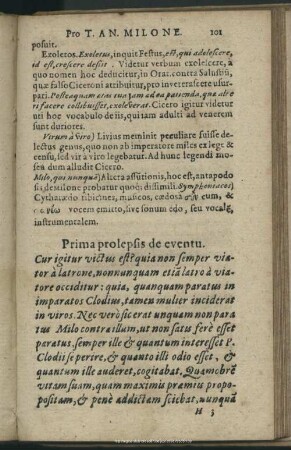 Pro T. AN. MILONE. 101
posuit.
Exoletos. Exoletus, inquit Festus, est, qui adolescere,
id est, crescere desiit. Videtur verbum exolescere, à
quo nomen hoc deducitur, in Orat. contra Salustiũ,
quæ falso Ciceroni attribuitur, pro inveterascere usur-
pari. Posteaquam ætas sua jam ad ea patienda, quæ alteri
facere collibuisset, exoleverat. Cicero igitur videtur
uti hoc vocabulo de iis, qui jam adulti ad venerem
sunt duriores.
Virum à viro) Livius meminit peculiare fuisse de-
lectus genus, quo non ab imperatore miles ex lege &
censu, sed vir à viro legebatur. Ad hunc legendi mo-
dum alludit Cicero.
Milo, qui nunquã) Altera assũtionis, hoc est, antapodo
sis, de Milone probatur quoq; dissimili. Symphoniacos)
Cytharœdo tibicines, musicos,
vocem emitto, sive sonum edo, seu vocalẽ,
instrumentalem.
Prima prolepsis de eventu.
Cur igitur victus est? quia non semper via-
tor à latrone, nonnunquam etiã latro à via-
tore occiditur: quia, quanquam paratus in
imparatos Clodius, tamen mulier inciderat
in viros. Nec verò sic erat unquam non para
tus Milo contra illum, ut non satu ferè esset
paratus. semper ille & quantum interesset P.
Clodii se perire, & quanto illi odio esset, &
quantum ille auderet, cogitabat. Quamobrẽ
vitam suam, quam maximis præmiis propo-
positam, & penè addictam sciebat, nunquã
H 3